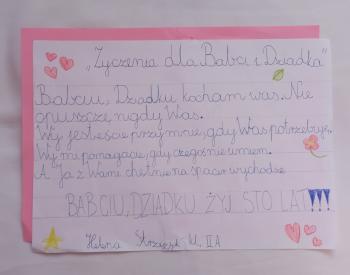 „Życzenia dla Babci i Dziadka"
Babciu, Dziadku kocham was. Nie
opuszczę nigdy Was.
Wy jesteście przy mnie, gdy Was potrzebuję.
Wy mi pomagacie, gdy czegoś nie umiem.
A ja z Wami chętnie na spacer wychodzę.
BABCIU, DZIADKU ŻYJ STO LAT!!!
Helena kl. II A